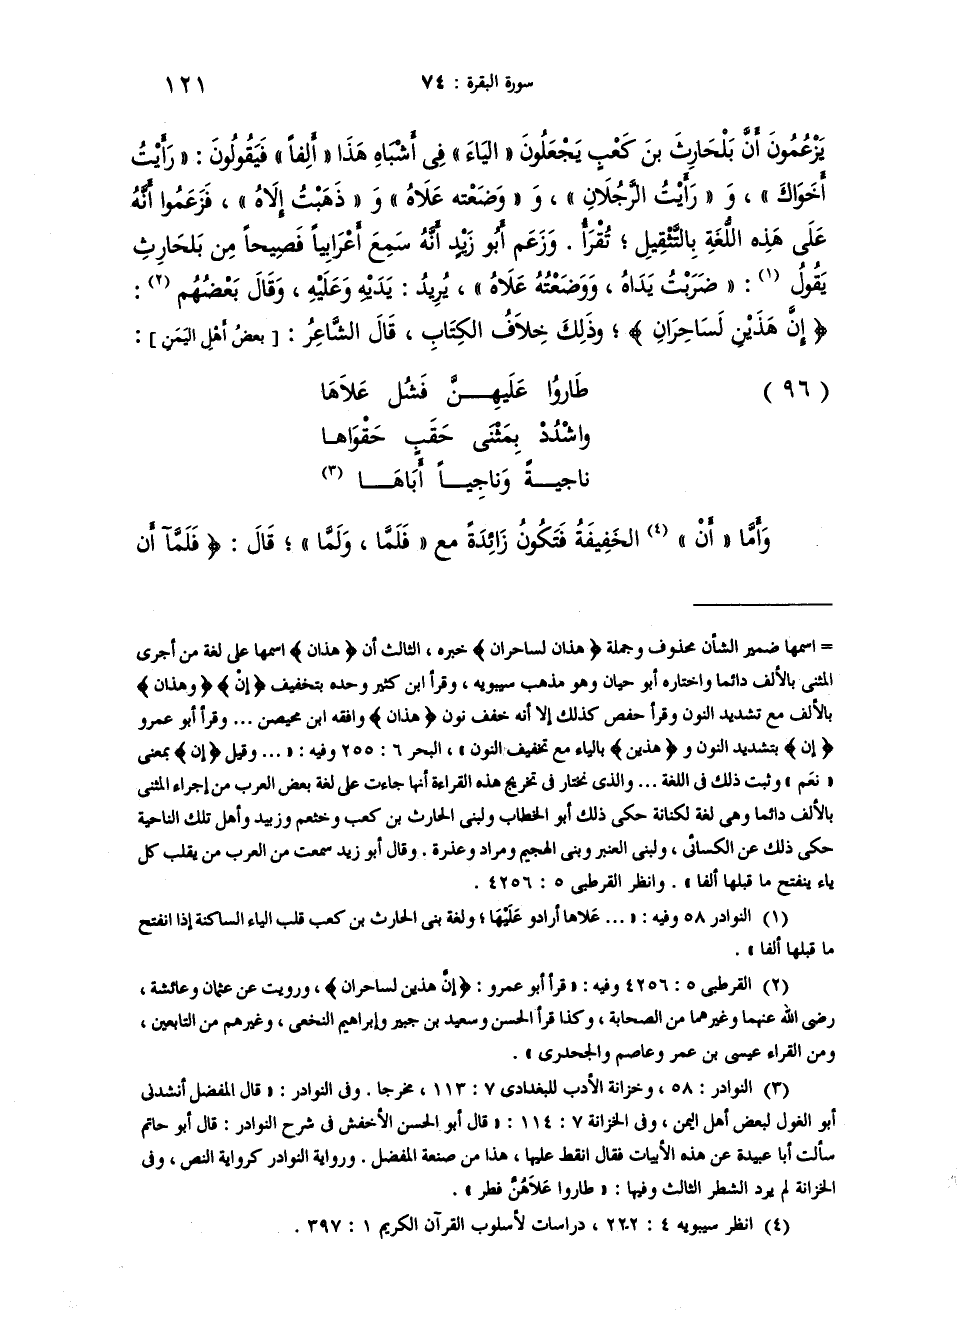 سورة البقرة : ٧٤ ١٢١
يَزْعُمُونَ أَنَّ بَلْحَارِثَ بنَ كَعْبٍ يَجْعَلُونَ « اليَاءَ » فِى أَشْبَاهِ هَذَا « أَلِفاً » فَيَقُولُونَ : « رَأَيْتُ
أَخَوَاكَ » ، وَ « رَأَيْتُ الرَّجُلَانِ » ، وَ « وَضَعْته عَلَاهُ » وَ « ذَهَبْتُ إِلَاهُ » ، فَزَعَمُوا أَنَّهُ
عَلَى هَذِهِ اللُّغَةِ بِالتَّثْقِيلِ ؛ تُقْرَأُ . وَزَعَم أَبُو زَيْدٍ أَنَّهُ سَمِعَ أَعْرَابِياً فَصِيحاً مِن بَلحَارِثِ
يَقُولُ (١) : « ضَرَبْتُ يَدَاهُ ، وَوَضَعْتُهُ عَلَاهُ » ، يُرِيدُ : يَدَيْهِ وَعَلَيْهِ ، وَقَالَ بَعْضُهُم (٢) :
﴿ إِنَّ هَذَيْنِ لَسَاحِرَانِ ﴾ ؛ وذَلِكَ خِلَافُ الكِتَابِ ، قَالَ الشَّاعِرُ : [ بعضُ أهْلِ اليَمَنِ ] :
( ٩٦ ) طَارُوا عَلَيهِـــنَّ فَشُل عَلَاهَا
واشْدُدْ بِمَثْنَى حَقَبٍ حَقْوَاهـا
ناجيـــةً وَناجِيـــاً أَبَاهَـــا (٣)
وَأَمَّا « أَنْ » (٤) الخَفِيفَةُ فَتَكُونُ زَائِدَةً مع « فَلَمَّا ، وَلَمَّا » ؛ قَالَ : ﴿ فَلَمَّآ أَن
= اسمها ضمير الشأن محذوف وجملة ﴿ هذان لساحران ﴾ خبره ، الثالث أن ﴿ هذان ﴾ اسمها على لغة من أجرى
المثنى بالألف دائما واختاره أبو حيان وهو مذهب سيبويه ، وقرأ ابن كثير وحده بتخفيف ﴿ إنْ ﴾ ﴿ وهذان ﴾
بالألف مع تشديد النون وقرأ حفص كذلك إلا أنه خفف نون ﴿ هذان ﴾ وافقه ابن محيصن ... وقرأ أبو عمرو
﴿ إن ﴾ بتشديد النون و ﴿ هذين ﴾ بالياء مع تخفيف النون » ، البحر ٦ : ٢٥٥ وفيه : « ... وقيل ﴿ إن ﴾ بمعنى
« نعَم » وثبت ذلك فى اللغة ... والذى نختار فى تخريج هذه القراءة أنها جاءت على لغة بعض العرب من إجراء المثنى
بالألف دائما وهى لغة لكنانة حكى ذلك أبو الخطاب ولبنى الحارث بن كعب وخثعم وزبيد وأهل تلك الناحية
حكى ذلك عن الكسائى ، ولبنى العنبر وبنى الهجيم ومراد وعذرة . وقال أبو زيد سمعت من العرب من يقلب كل
ياء ينفتح ما قبلها ألفا » . وانظر القرطبى ٥ : ٤٢٥٦ .
(١) النوادر ٥٨ وفيه : « ... عَلاها أرادو عَلَيْهَا ؛ ولغة بنى الحارث بن كعب قلب الياء الساكنة إذا انفتح
ما قبلها ألفا » .
(٢) القرطبى ٥ : ٤٢٥٦ وفيه : « قرأ أبو عمرو : ﴿ إنَّ هذين لساحران ﴾ ، ورويت عن عثمان وعائشة ،
رضى الله عنهما وغيرهما من الصحابة ، وكذا قرأ الحسن وسعيد بن جبير وإبراهيم النخعى ، وغيرهم من التابعين ،
ومن القراء عيسى بن عمر وعاصم والجحدرى » .
(٣) النوادر : ٥٨ ، وخزانة الأدب للبغدادى ٧ : ١١٣ ، مخرجا . وفى النوادر : « قال المفضل أنشدنى
أبو الغول لبعض أهل اليمن ، وفى الخزانة ٧ : ١١٤ : « قال أبو الحسن الأخفش فى شرح النوادر : قال أبو حاتم
سألت أبا عبيدة عن هذه الأبيات فقال انقط عليها ، هذا من صنعة المفضل . ورواية النوادر كرواية النص ، وفى
الخزانة لم يرد الشطر الثالث وفيها : « طاروا عَلاَهُنَّ فطر » .
(٤) انظر سيبويه ٤ : ٢٢٢ ، دراسات لأسلوب القرآن الكريم ١ : ٣٩٧ .